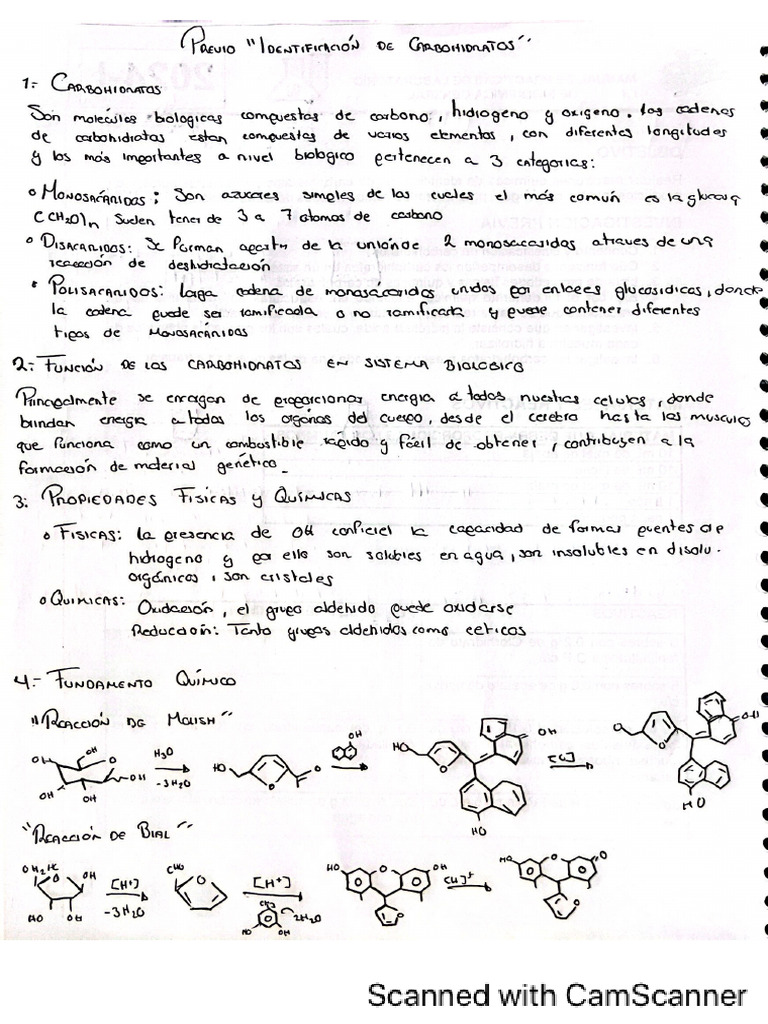 PREVIO "IDENTIFICACIÓN DE CARBOHIDRATOS"
1.- CARBOHIDRATOS
Son moleculas biologicas compuestas de carbono, hidrogeno y oxigeno. Las cadenas
de carbohidratos estan compuestas de varios elementos, con diferentes longitudes
y los más importantes a nivel biologico pertenecen a 3 categorias:
MONOSACÁRIDOS: Son azucares simples de los cuales el más común es la glucosa
(CH2O)n Suelen tener de 3 a 7 atomos de carbono
DISACARIDOS: Se forman apartir de la unión de 2 monosacaridos atraves de una
reacción de deshidratación
POLISACARIDOS: Larga cadena de monosacáridos unidos por enlaces glucosidicas, donde
la cadena puede ser ramificada o no ramificada y puede contener diferentes
tipos de MONOSACÁRIDOS
2.- FUNCIÓN DE LOS CARBOHIDRATOS EN SISTEMA BIOLOGICO
Principalmente se encargan de proporcionar energia a todas nuestras celulas, donde
brindan energia a todos los organos del cuerpo, desde el cerebro hasta los musculos
que funciona como un combustible rápido y fácil de obtener, contribuyen a la
formación de material genético.
3: PROPIEDADES FISICAS Y QUÍMICAS
FISICAS: la presencia de OH la capacidad de formar puentes de
hidrogeno y por ello son solubles en agua, son insolubles en disolv.
orgánicos, son cristales
QUIMICAS: Oxidación, el grupo aldehido puede oxidarse
Reducción: Tanto grupos aldehidos como ceticos
4.- FUNDAMENTO QUÍMICO
"REACCIÓN DE MOLISH"
OH O OH OH OH H3O -3H2O HO O O OH HO O OH HO [O] O O OH HO
"REACCIÓN DE BIAL"
OH2HC O OH HO OH [H+] -3H2O CHO O [H+] CH3 HO OH 2H2O HO O OH O HO O O O
Scanned with CamScanner